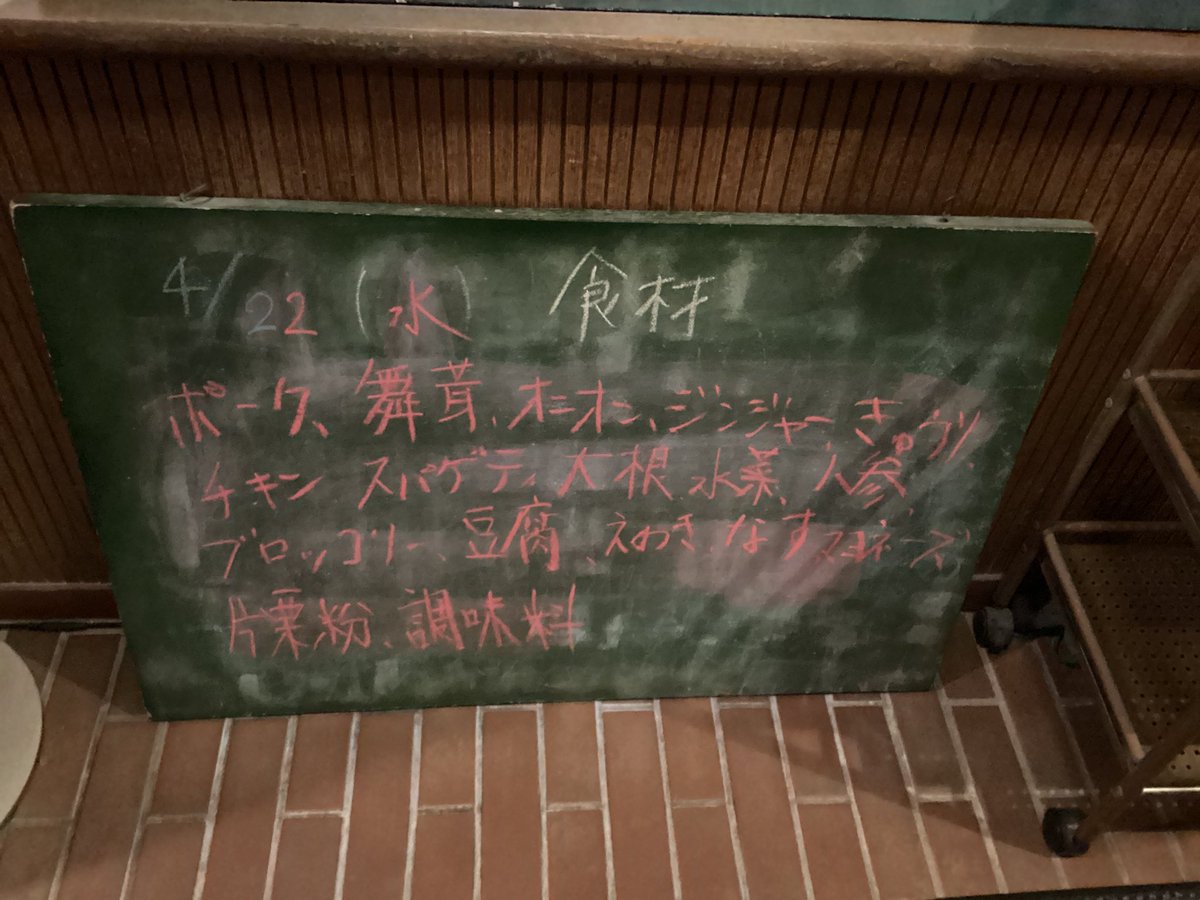 4/22 (水) 食材
ポーク、舞茸、オニオン、ジンジャー、きゅウリ、
チキン スパゲティ、大根、水菜、人参、
ブロッコリー、豆腐、えのき、なす、マヨネーズ、
片栗粉、調味料